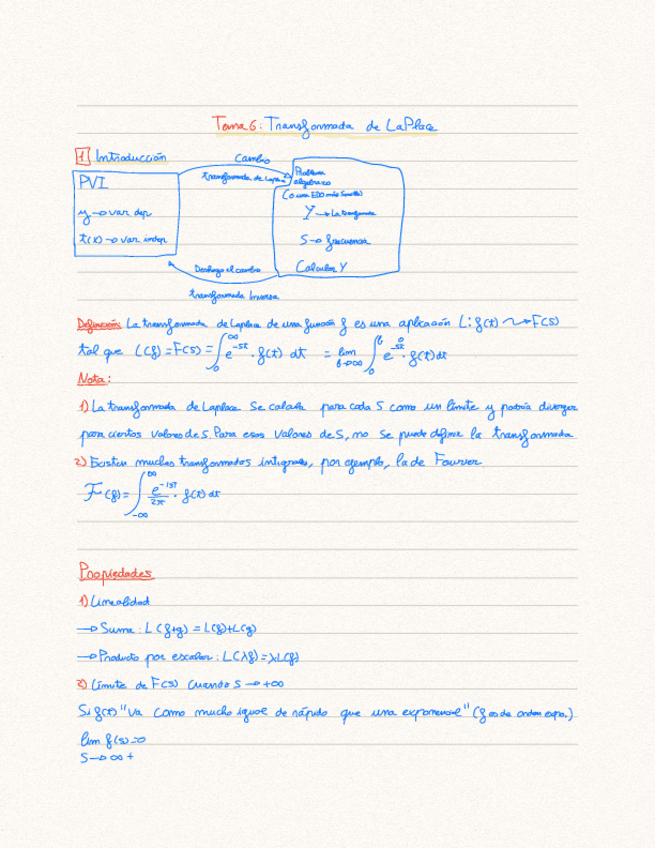 Tema 6: Transformada de LaPlace
1 Introducción
Cambio
transformada de Laplace
PVI
y → var dep
t(x) → var indep
Problema
algebraico
(o una EDO más sencilla)
Y → La transformada
s → frecuencia
Calculor Y
Deshago el cambio
transformada Inversa
Definición: La transformada de Laplace de una función f es una aplicación L: f(t) ⟿ F(s)
tal que L(f) = F(s) = ∫₀^∞ e^{-st} · f(t) dt = lim_{b→∞} ∫₀^b e^{-st} · f(t) dt
Nota:
1) La transformada de Laplace se calcula para cada s como un límite y podría diverger
para ciertos valores de s. Para esos valores de s, no se puede definir la transformada
2) Existen muchas transformadas integrales, por ejemplo, la de Fourier
F(f) = ∫_{-∞}^{∞} e^{-ist}/2π · f(t) dt
Propiedades
1) Linealidad
→ Suma: L(f+g) = L(f)+L(g)
→ Producto por escalar: L(λf) = λL(f)
2) Límite de F(s) cuando s → +∞
Si f(t) "va como mucho igual de rápido que una exponencial" (f es de orden expo.)
lim f(s) = 0
s → ∞ +